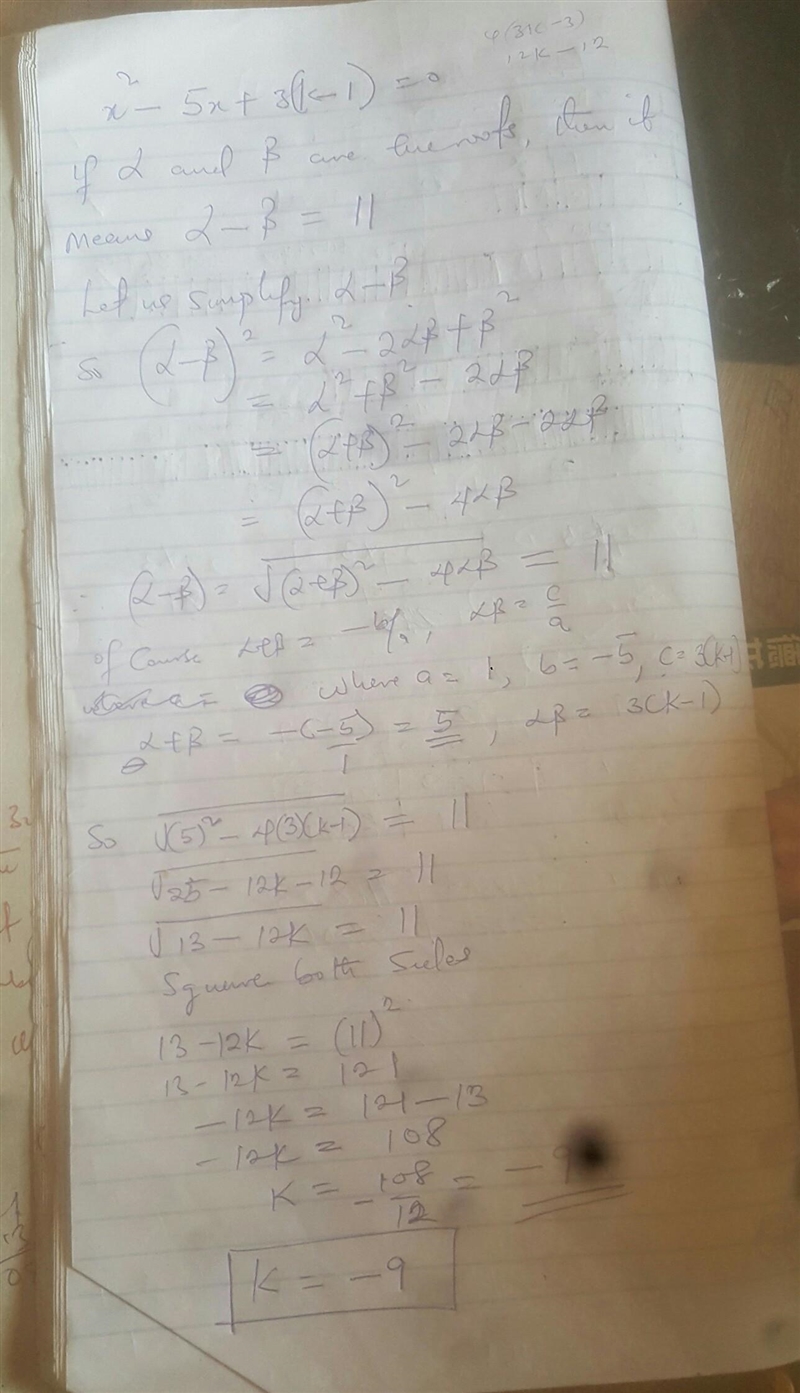 4(3K-3)
12K-12
x² - 5x + 3(k-1) = 0
If α and β are the roots, then it
means α - β = 11
Let us simplify α-β
So (α-β)² = α² - 2αβ + β²
= α² + β² - 2αβ
= (α+β)² - 2αβ - 2αβ
= (α+β)² - 4αβ
∴ (α-β) = √(α+β)² - 4αβ = 11
of course α+β = -b/a, αβ = c/a
where a = 1, b = -5, c = 3(k-1)
α+β = -(-5)/1 = 5, αβ = 3(k-1)
So √(5)² - 4(3)(k-1) = 11
√25 - 12k - 12 = 11
√13 - 12k = 11
Square both sides
13 - 12k = (11)²
13 - 12k = 121
-12k = 121 - 13
-12k = 108
K = -108/12 = -9
K = -9